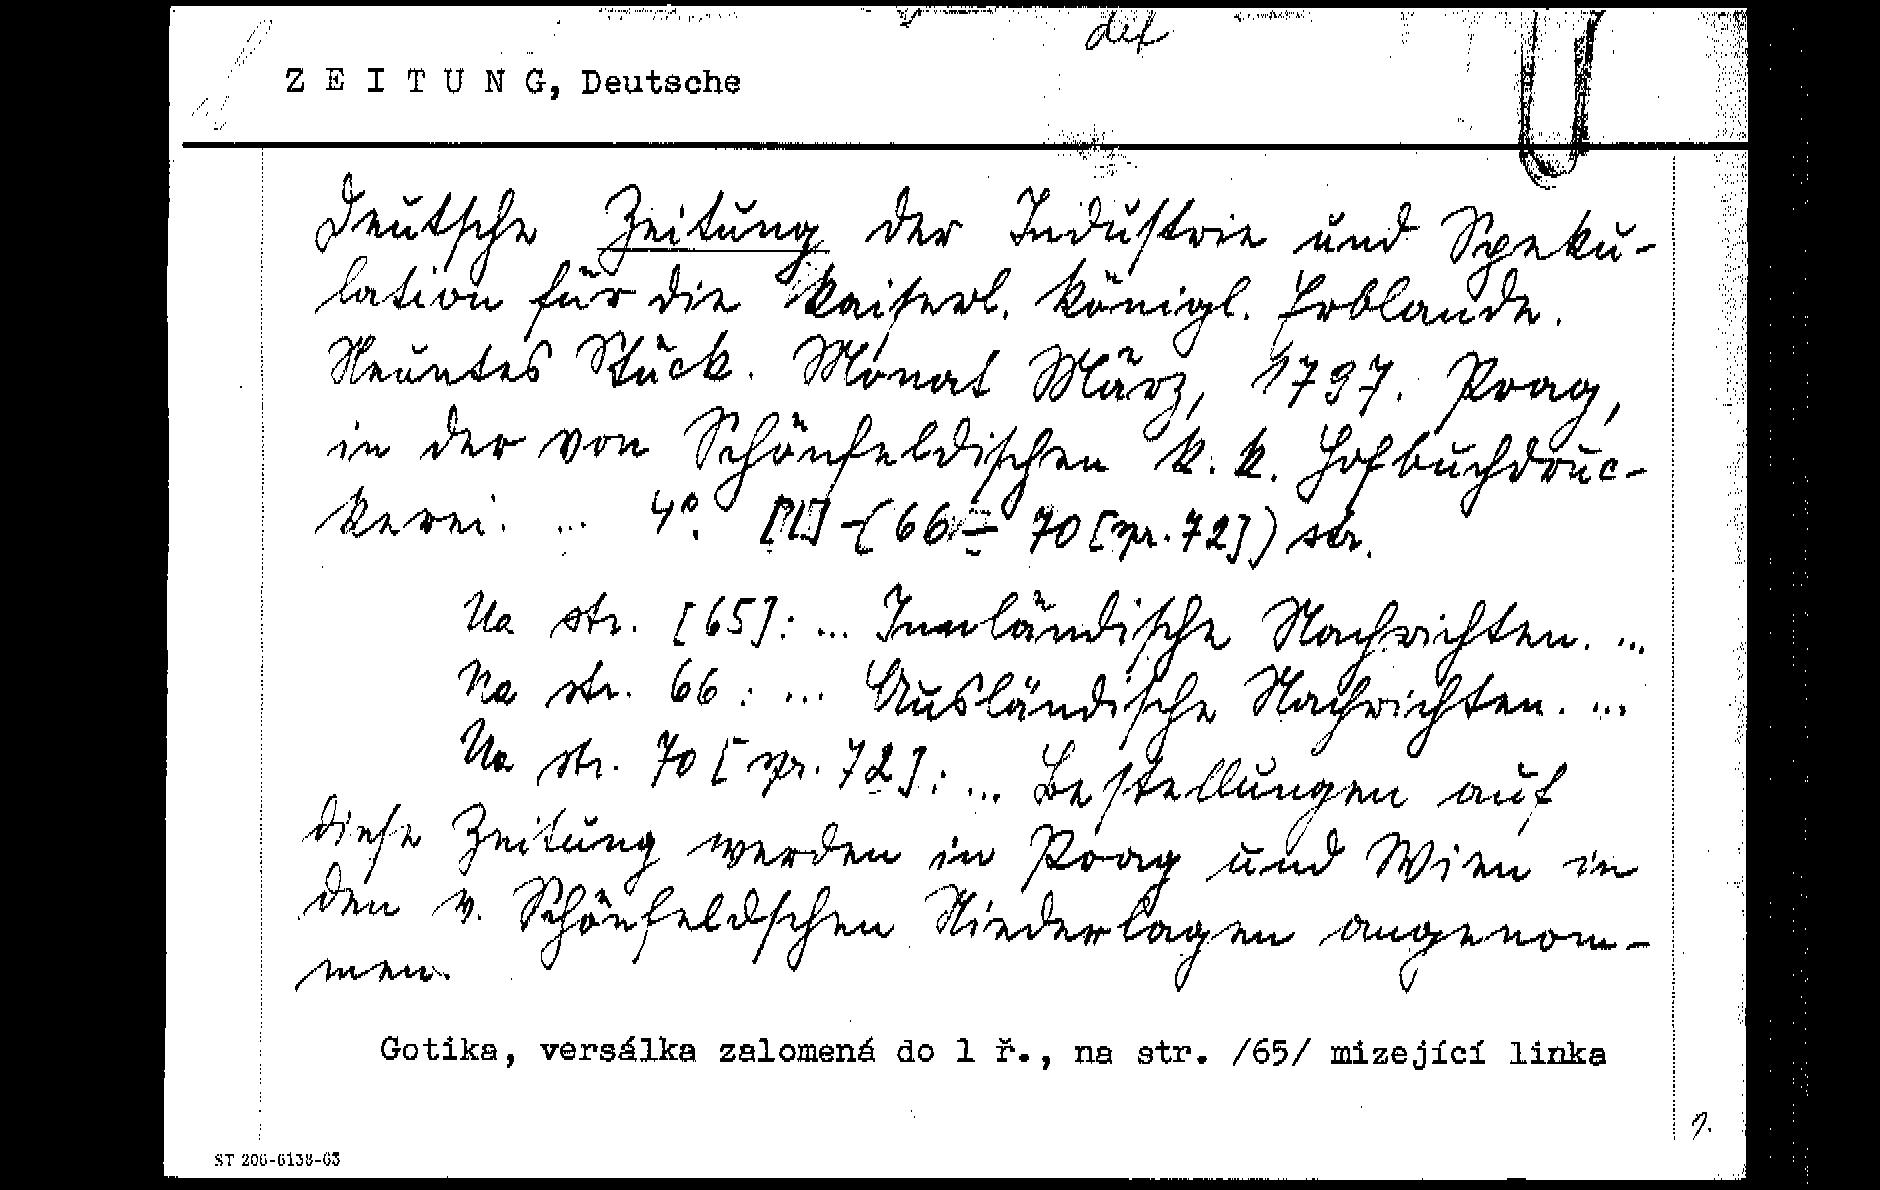 def
Z E I T U N G, Deutsche
Deutsche Zeitung der Industrie und Speku-
lation für die kaiserl. königl. Erblande.
Neuntes Stück. Monat März, 1797. Prag,
in der von Schönfeldischen k. k. Hofbuchdruc-
kerei. ... 4°. -(66 - 70 [spr. 72]) str.
Na str. [65]: ... Innländische Nachrichten. ...
Na str. 66 : ... Ausländische Nachrichten. ...
Na str. 70 [spr. 72]: ... Bestellungen auf
diese Zeitung werden in Prag und Wien in
den v. Schönfeldschen Niederlagen angenom-
men.
Gotika, versálka zalomená do 1 ř., na str. /65/ mizející linka
ST 206-6138-63